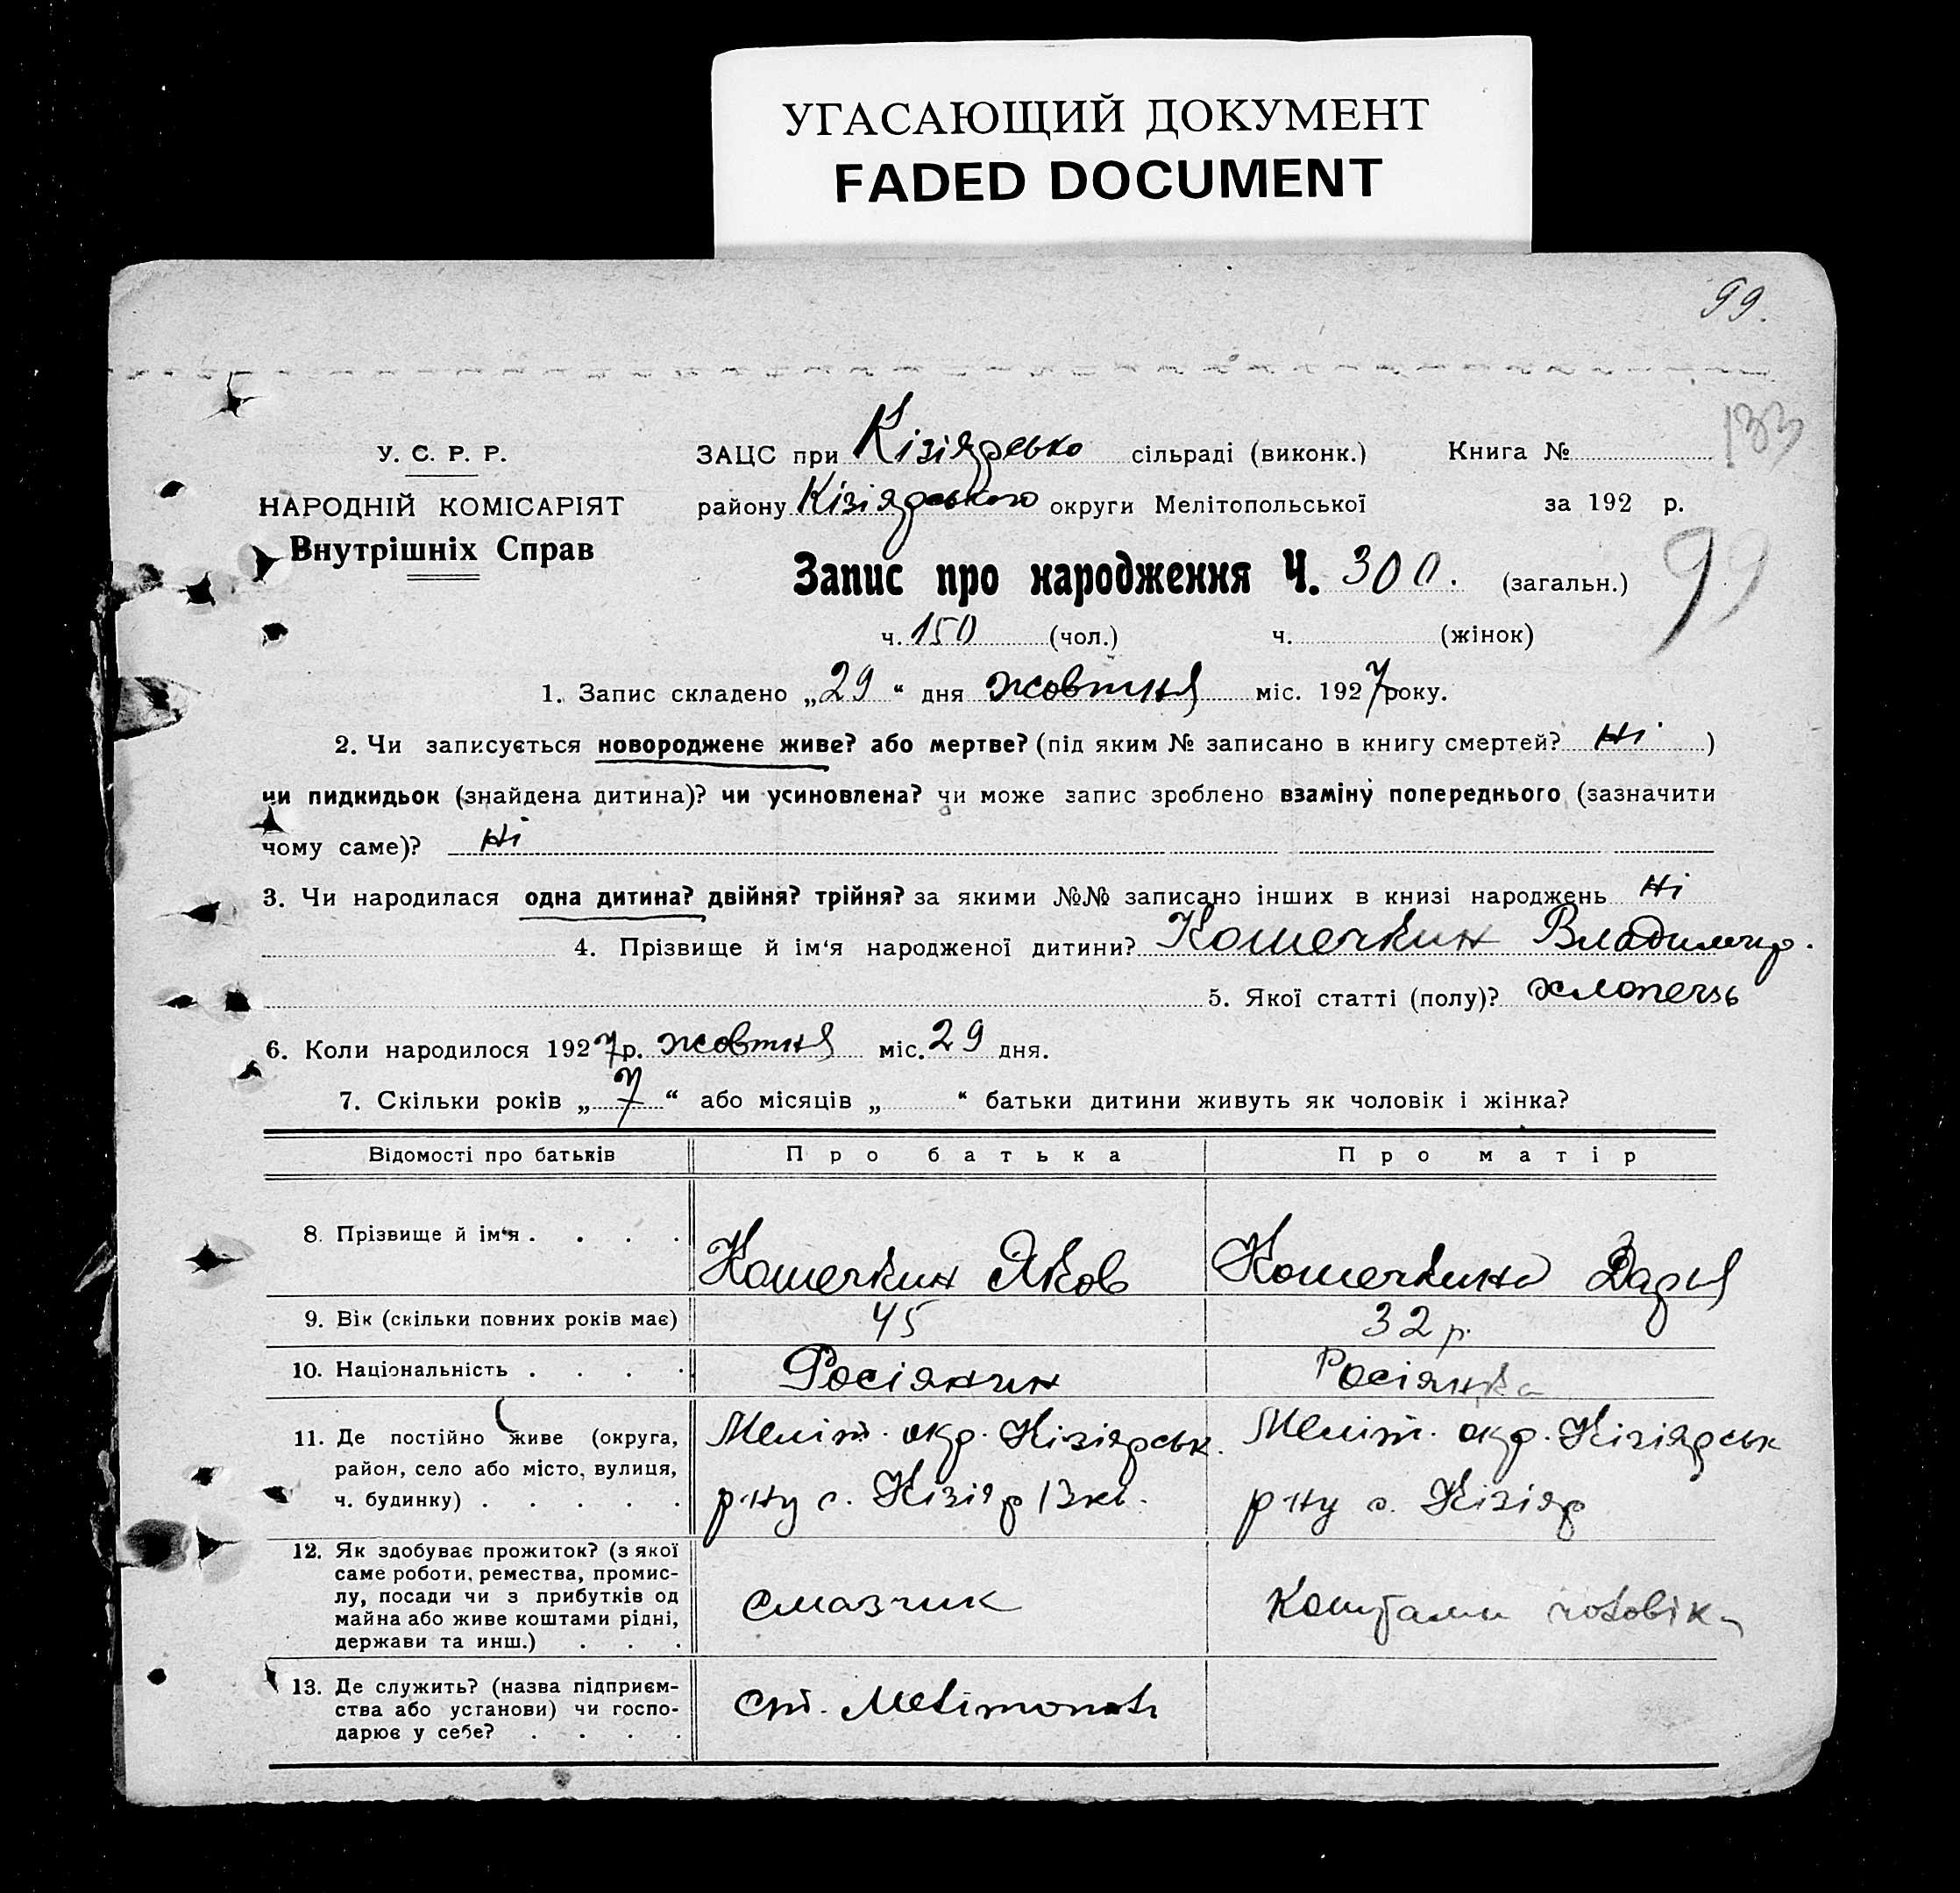 УГАСАЮЩИЙ ДОКУМЕНТ
FADED DOCUMENT
99.
133
У. С. Р. Р.
НАРОДНІЙ КОМІСАРІЯТ
Внутрішніх Справ
ЗАЦС при Кізіярсько сільраді (виконк.) Книга №
району Кізіярського округи Мелітопольської за 192 р.
Запис про народження Ч. 300. (загальн.) 99
ч. 150 (чол.) ч. (жінок)
1. Запис складено „29“ дня жовтня міс. 1927 року.
2. Чи записується новороджене живе? або мертве? (під яким № записано в книгу смертей? Ні )
чи пидкидьок (знайдена дитина)? чи усиновлена? чи може запис зроблено взаміну попереднього (зазначити
чому саме)? Ні
3. Чи народилася одна дитина? двійня? трійня? за якими №№ записано інших в книзі народжень Ні
4. Прізвище й ім‘я народженої дитини? Кошечкин Владимир.
5. Якої статті (полу)? хлопець
6. Коли народилося 1927 р. жовтня міс. 29 дня.
7. Скільки років „7“ або місяців „ “ батьки дитини живуть як чоловік і жінка?
Відомості про батьків Про батька Про матір
8. Прізвище й ім‘я . . . . Кошечкин Яков Кошечкина Дарья
9. Вік (скільки повних років має) 45 32 р.
10. Національність . . . . Росіянин Росіянка
11. Де постійно живе (округа,
район, село або місто, вулиця,
ч. будинку) . . . . .
Меліт. окр. Кізіярськ.
р-ну с. Кізіяр 13 кв.
Меліт. окр. Кізіярськ
р-ну с. Кізіяр
12. Як здобуває прожиток? (з якої
саме роботи, ремества, промис-
лу, посади чи з прибутків од
майна або живе коштами рідні,
держави та инш.) . . .
смазчик
Коштами чоловіка
13. Де служить? (назва підприєм-
ства або установи) чи госпо-
дарює у себе? . . . .
Ст. Мелітополь